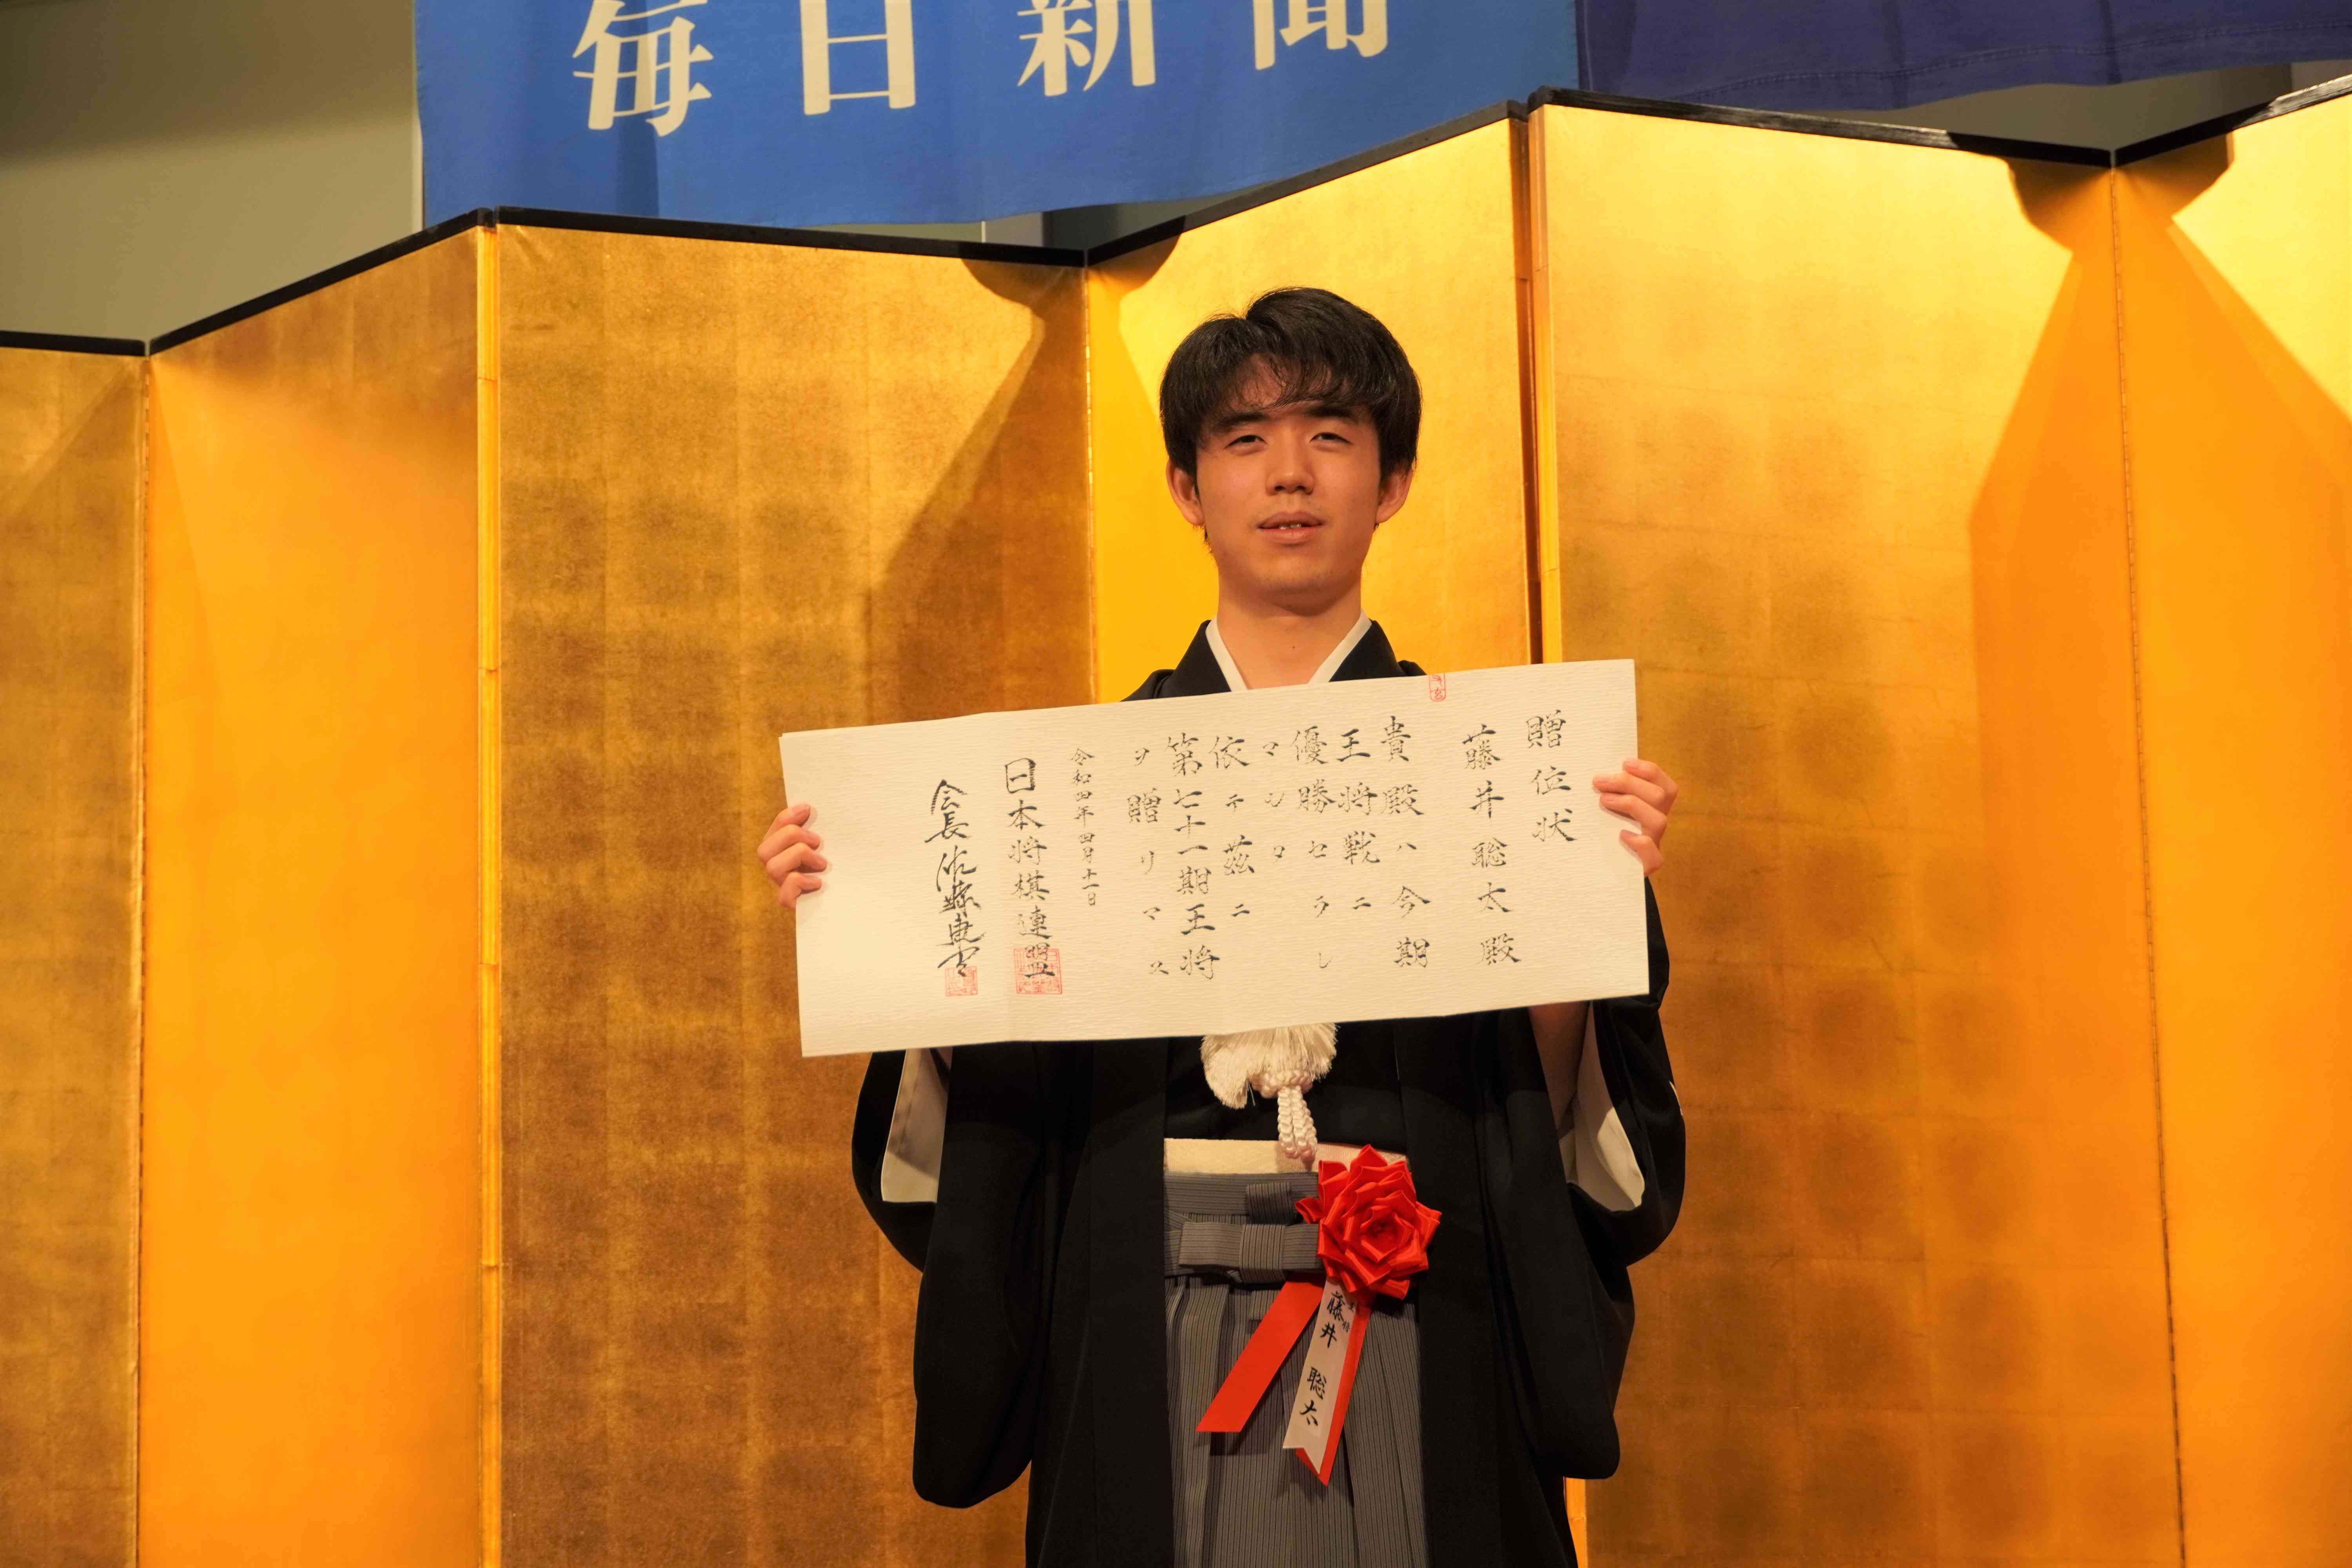 毎日新聞
贈位状
藤井聡太殿
貴殿ハ今期
王将戦ニ
優勝セラレ
マシタ
依テ茲ニ
第七十一期王将
ヲ贈リマス
令和四年四月十一日
日本将棋連盟
会長佐藤康光
藤井聡太